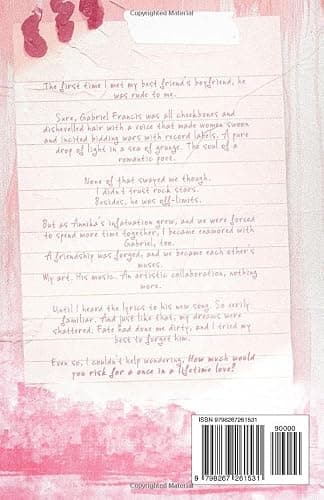 Copyrighted Material
The first time I met my best friend's boyfriend, he
was rude to me.
Sure, Gabriel Francis was all cheekbones and
dishevelled hair with a voice that made women swoon
and incited bidding wars with record labels. A pure
drop of light in a sea of grunge. The soul of a
romantic poet.
None of that swayed me though.
I didn't trust rock stars.
Besides, he was off-limits.
But as Annika's infatuation grew, and we were forced
to spend more time together, I became enamored with
Gabriel, too.
A friendship was forged, and we became each other's
muses.
My art. His music. An artistic collaboration, nothing
more.
Until I heard the lyrics to his new song. So eerily
familiar. And just like that, my dreams were
shattered. Fate had done me dirty, and I tried my
best to forget him.
Even so, I couldn't help wondering, How much would
you risk for a once in a lifetime love?
ISBN 9798267261531
90000
9 798267 261531
Copyrighted Material